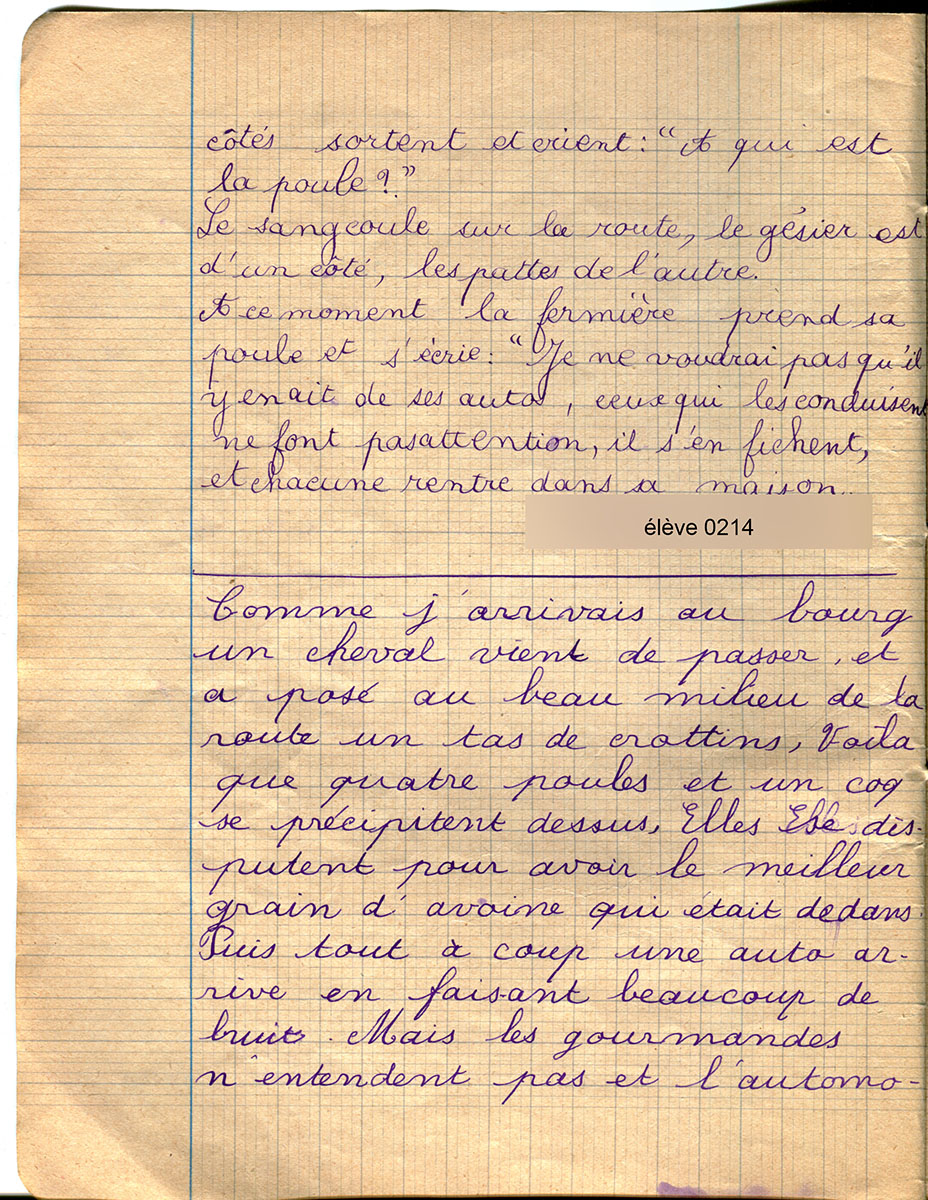 côtés sortent et crient : "A qui est
la poule ?"
Le sang coule sur la route, le gésier est
d'un côté, les pattes de l'autre.
A ce moment la fermière prend sa
poule et s'écrie : "Je ne voudrai pas qu'il
y en ait de ses autos, ceux qui les conduisent
ne font pas attention, il s'en fichent,
et chacune rentre dans sa maison.
élève 0214
Comme j'arrivais au bourg
un cheval vient de passer, et
a posé au beau milieu de la
route un tas de crottins, Voila
que quatre poules et un coq
se précipitent dessus, Elles se dis-
putent pour avoir le meilleur
grain d'avoine qui était dedans.
Puis tout à coup une auto ar-
rive en faisant beaucoup de
bruit. Mais les gourmandes
n'entendent pas et l'automo-